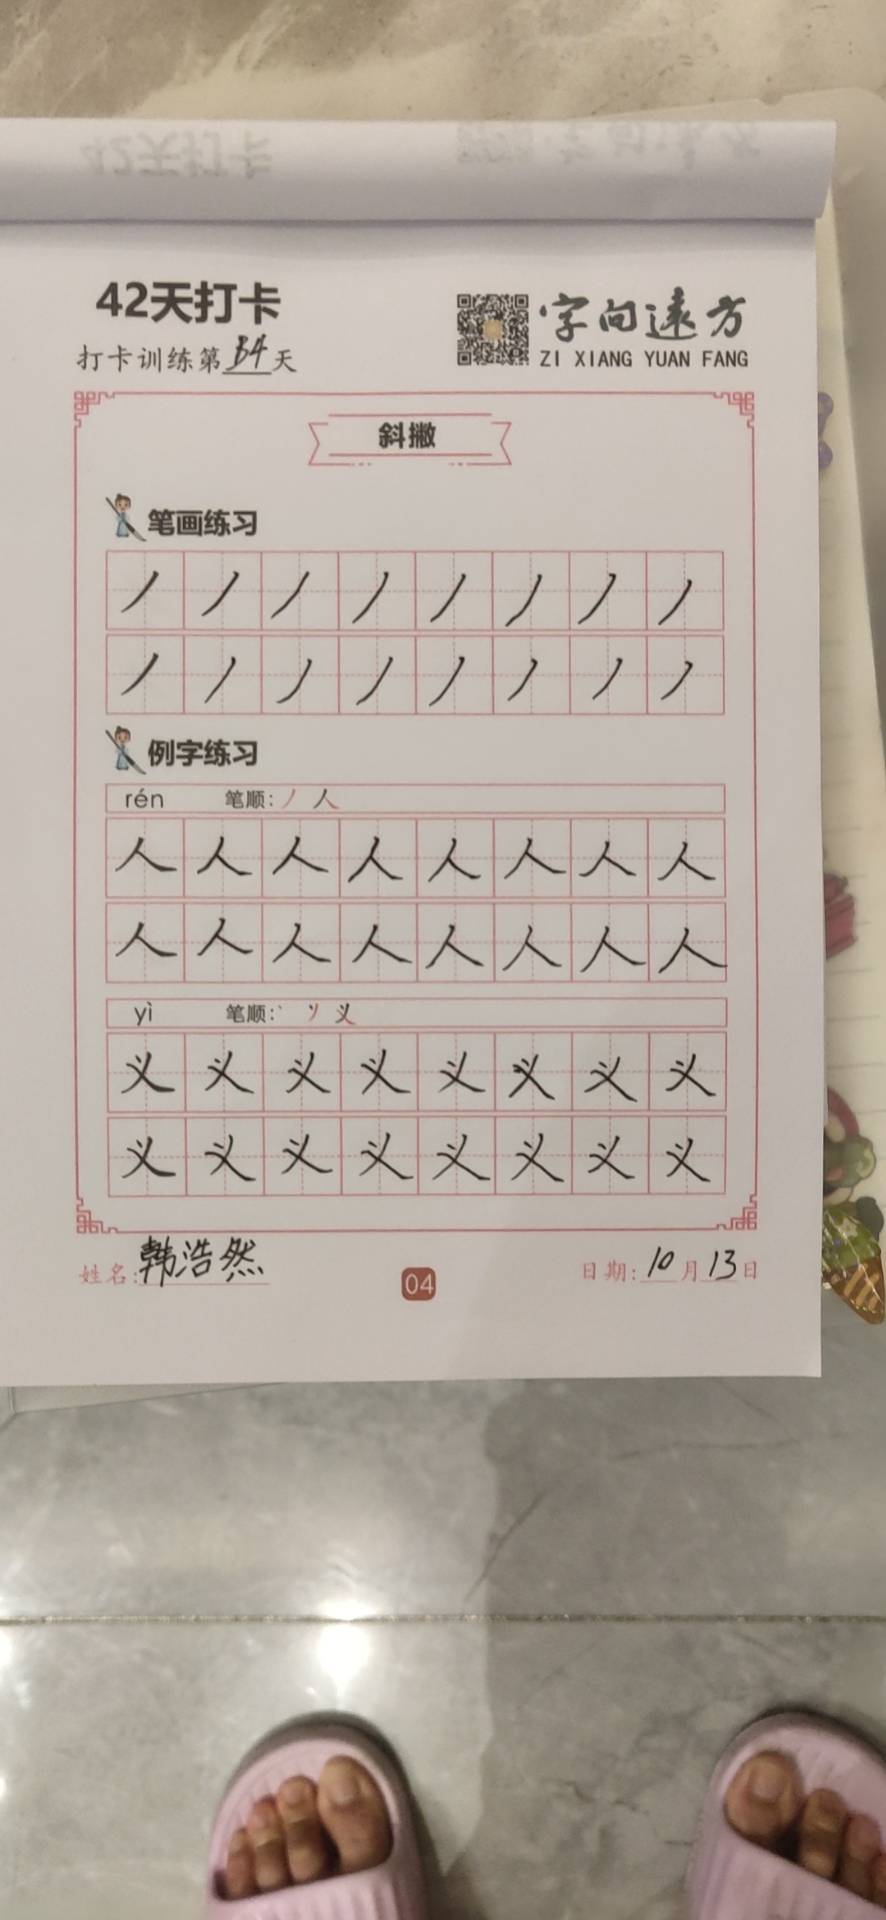 42天打卡
字向远方
ZI XIANG YUAN FANG
打卡训练第34天
斜撇
笔画练习
丿丿丿丿丿丿丿丿
丿丿丿丿丿丿丿丿
例字练习
rén 笔顺:丿 人
人人人人人人人人
人人人人人人人人
yì 笔顺:丶 丷 义
义义义义义义义义
义义义义义义义义
姓名:韩浩然
04
日期:10月13日